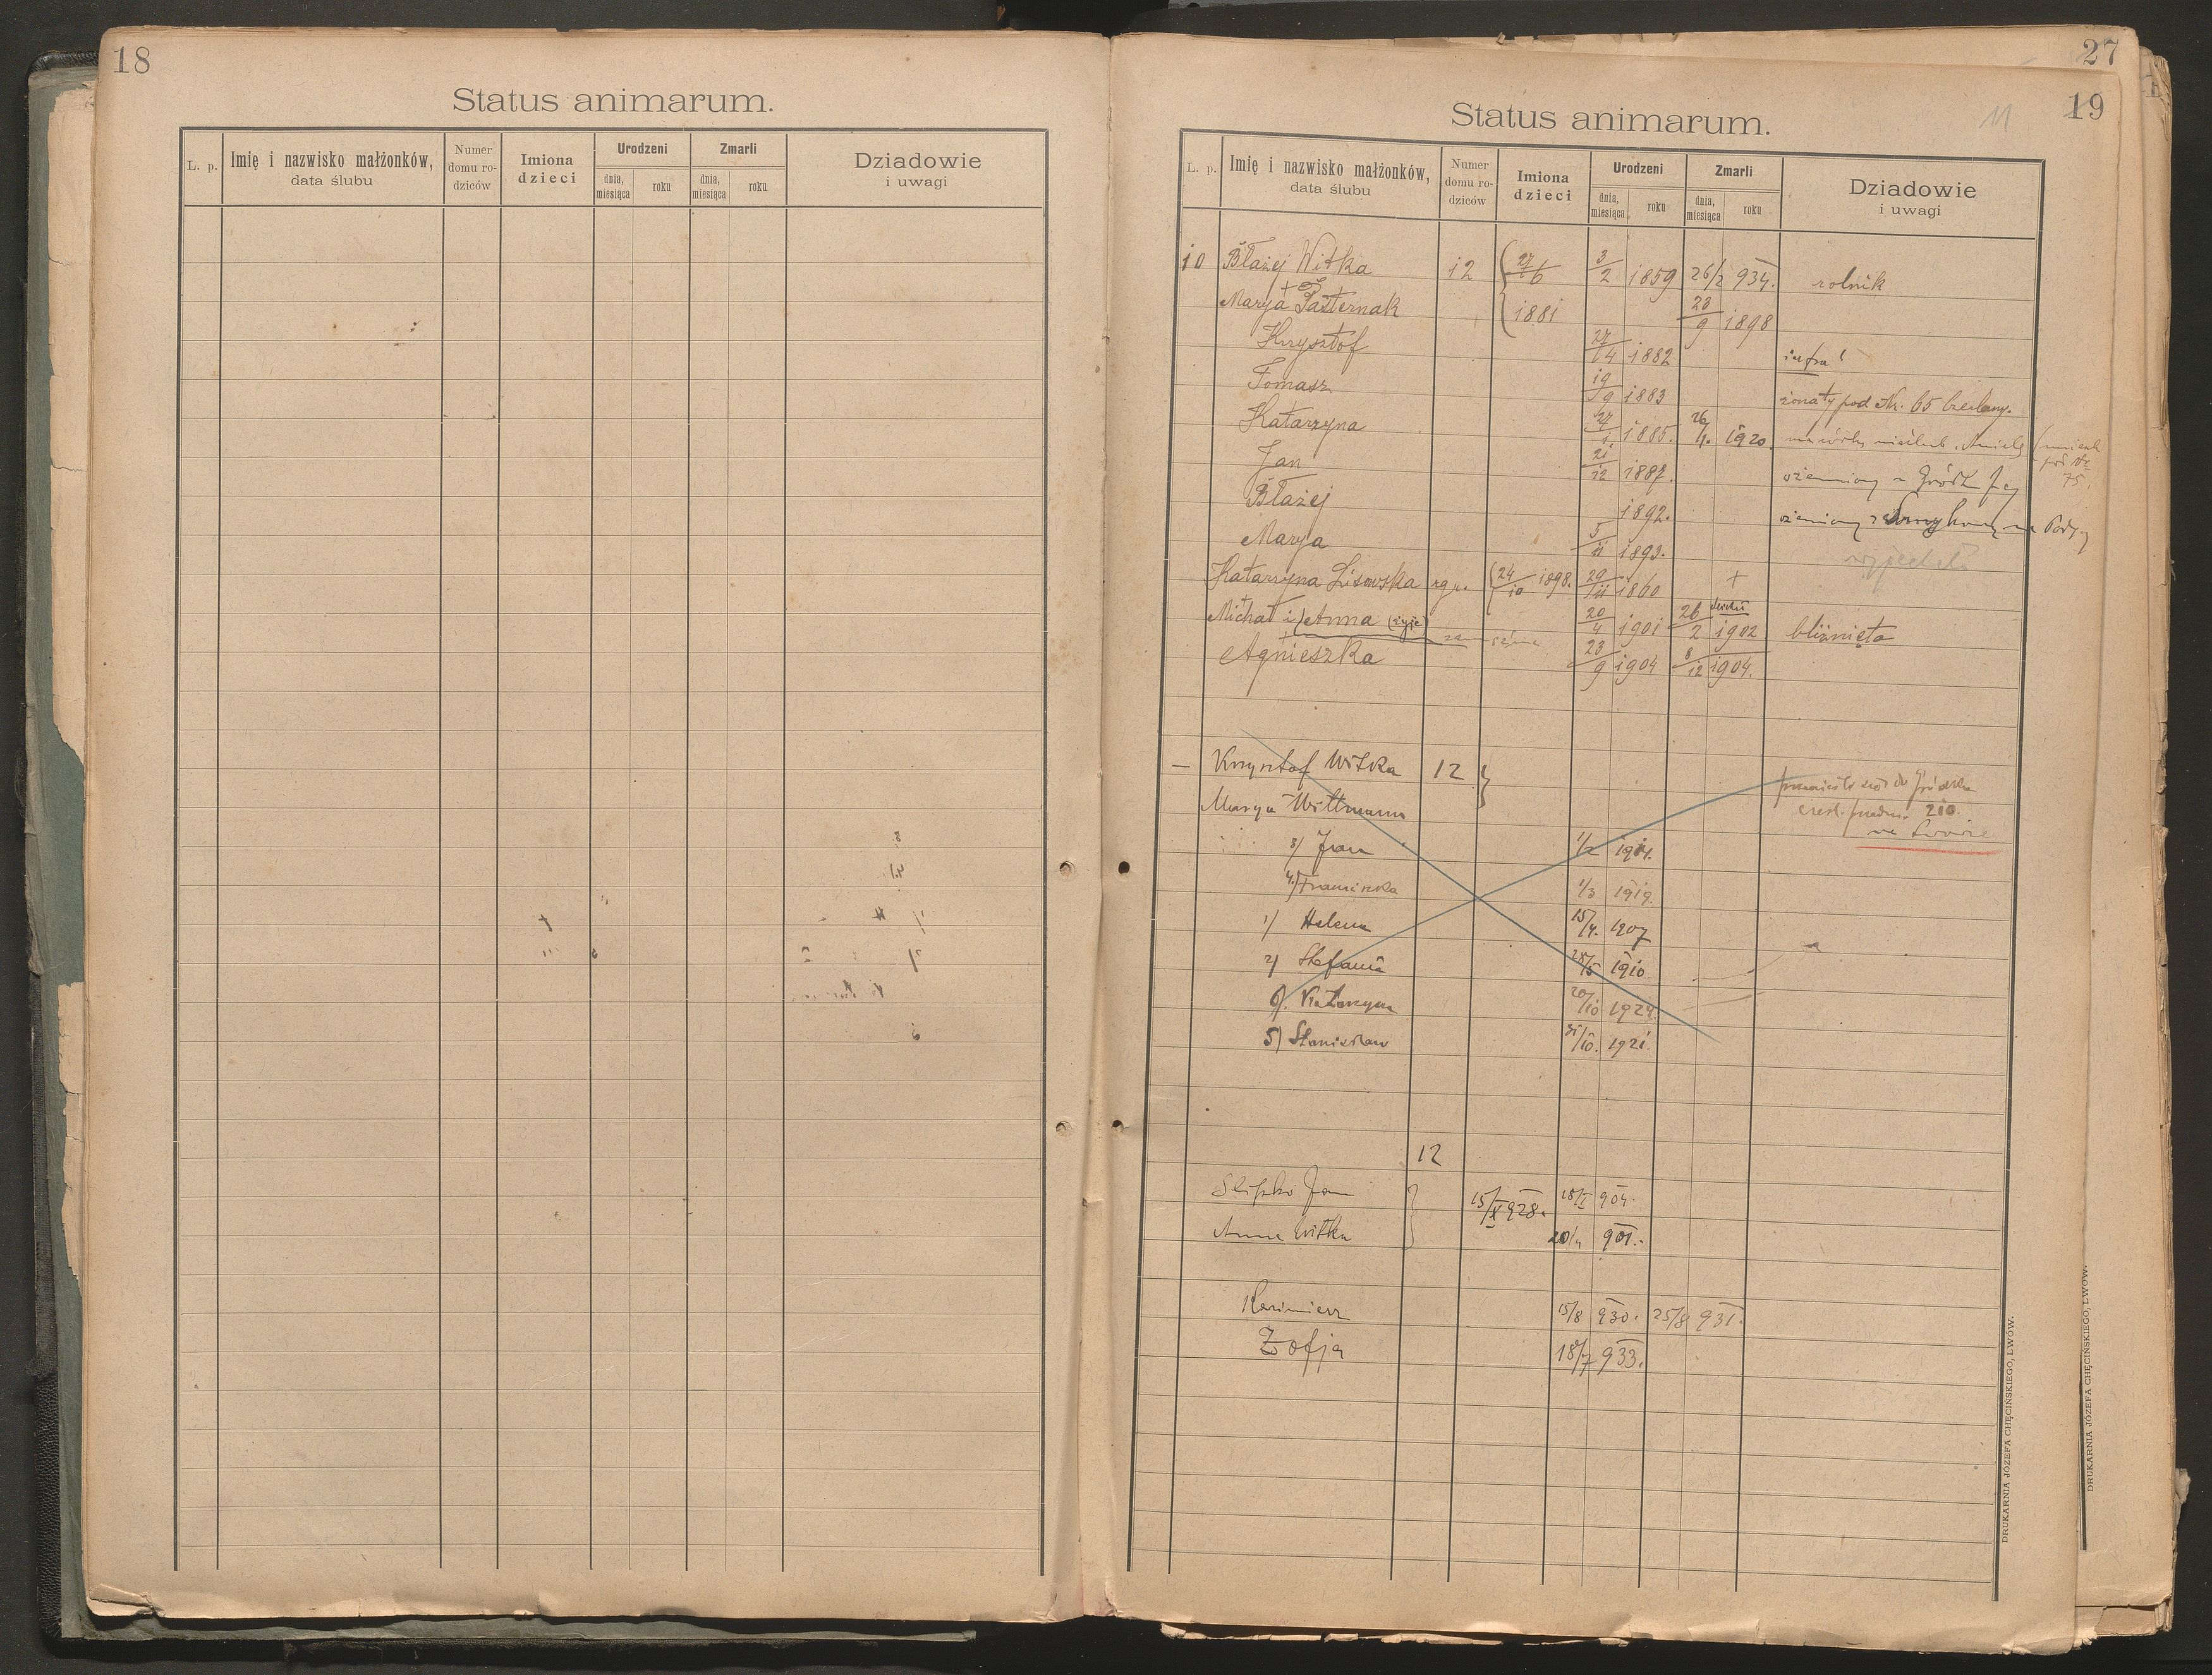 18
Status animarum.
L. p. Imię i nazwisko małżonków, data ślubu Numer domu rodziców Imiona dzieci Urodzeni dnia, miesiąca roku Zmarli dnia, miesiąca roku Dziadowie i uwagi
27
19
11
Status animarum.
L. p. Imię i nazwisko małżonków, data ślubu Numer domu rodziców Imiona dzieci Urodzeni dnia, miesiąca roku Zmarli dnia, miesiąca roku Dziadowie i uwagi
10 Błażej Witka 12 27/6 3/2 1859 26/2 934. rolnik
Marya Pasternak 1881 23/9 1898
Krzysztof 27/4 1882 infra!
Tomasz 19/9 1883 żonaty pod Nr. 65
Katarzyna 27/1. 1885. 26/4. 1920. Anielę
pod Nr 75.
Jan 21/12 1887. ożeniony
Błażej 1892. ożeniony
Marya 5/11 1893. wyjechała
Katarzyna Lisowska 24/10 1898. 29/11 1860 +
Michał i Anna (żyje) 20/4 1901 26/2 1902 bliźnięta
Agnieszka 23/9 1904 8/12 1904.
— Krzysztof Witka 12
Marya Wittmann 210
3) Jan 1/2 1914.
4) Franciszka 1/3 1919.
1) Helena 15/4. 1907
2) Stefania 28/5 1910.
6). Katarzyna 20/10 1924.
5) Stanisław 31/10. 1921.
12
Slipko Jan 15/X 928. 18/I 904.
Anna Witka 20/4 901.-
Kazimierz 15/8 930. 25/8 931.
Zofja 18/7 933.
DRUKARNIA JÓZEFA CHĘCIŃSKIEGO, LWÓW.
DRUKARNIA JÓZEFA CHĘCIŃSKIEGO, LWÓW.